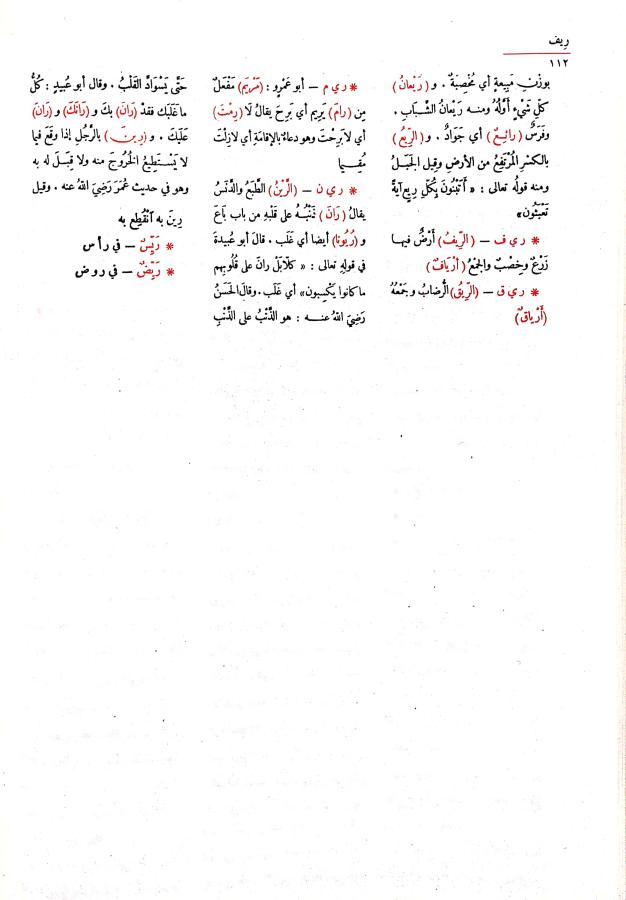 رِيف
١١٢
بوزن مَبِيعةٍ أي مُخْصِبَةٌ . و (رَيْعانُ)
كلّ شَيْءٍ أَوَّلُهُ ومنــه رَيْعانُ الشَّبَابِ .
وفَرَسٌ (رائِعٌ) أي جَوَادٌ . و (الرِّيعُ)
بالكسرِ المُرْتَفِعُ من الأرضِ وقيل الجَبَــلُ
ومنه قولُه تعالى : « أَتَبْنُونَ بِكُلِّ رِيعٍ آيَةً
تَعْبَثُون»
* ر ي ف — (الرِّيفُ) أَرْضٌ فيهـا
زَرْعٌ وخِصْبٌ والجمْعُ (أَرْيافٌ)
* ر ي ق — (الرِّيقُ) الرُّضابُ وجَمْعُهُ
(أَرْياقٌ)
* ر ي م — أبو عَمْرٍو : (مَرْيَمُ) مَفْعَلٌ
مِن (رامَ) يَرِيم أي بَرِحَ يقالُ لَا (رِمْتَ)
أي لا بَرِحْتَ وهو دعاءٌ بالإقامةِ أي لا زِلْتَ
مُقِــيما
* ر ي ن — (الرَّيْنُ) الطَّبَعُ والدَّنَسُ
يقالُ (رَانَ) ذَنْبُــهُ على قَلْبِه من باب بَاعَ
و (رُيُونا) أيضا أي غَلَب . قالَ أبو عُبيدةَ
في قولِهِ تعالى : « كلا بَلْ رانَ على قُلُوبِهِم
ما كانوا يَكْسِبون» أي غَلَب . وقالَ الحَسَنُ
رَضِيَ اللهُ عنـــه : هو الذَّنْبُ على الذَّنْبِ
حَتَّى يَسْوَادَّ القَلْبُ . وقال أبو عُبيدٍ : كُلُّ
ما غَلَبَك فقدْ (رَانَ) بك و (رَانَكَ) و (رَانَ)
عَلَيْكَ . و (رِيـنَ) بالرَّجُلِ إذا وقَعَ فيما
لا يَسْتَطِيعُ الخُرُوجَ منه ولا قِبَــلَ له به
وهو في حديث عُمَرَ رَضِيَ اللهُ عنه . وقيل
رِينَ به انْقُطِع به
* رَيِّسٌ — في ر أ س
* رَيِّضٌ — في ر و ض